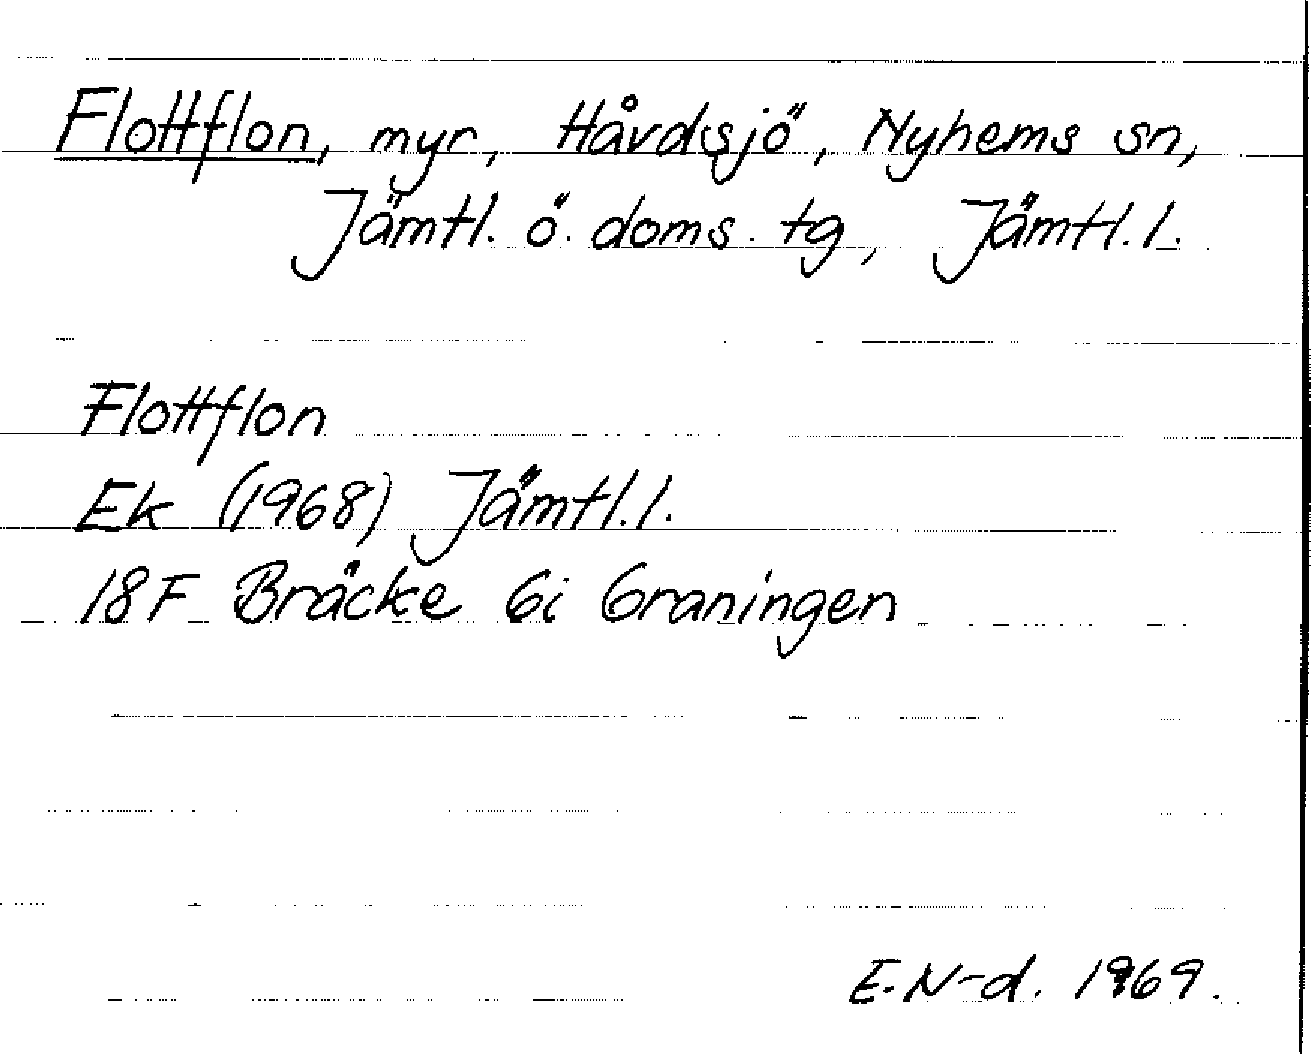 Flottflon, myr, Håvdsjö, Nyhems sn,
Jämtl. ö. doms. tg, Jämtl. l.
Flottflon
Ek (1968) Jämtl. l.
18F Bräcke 6i Graningen
E. N-d. 1969.